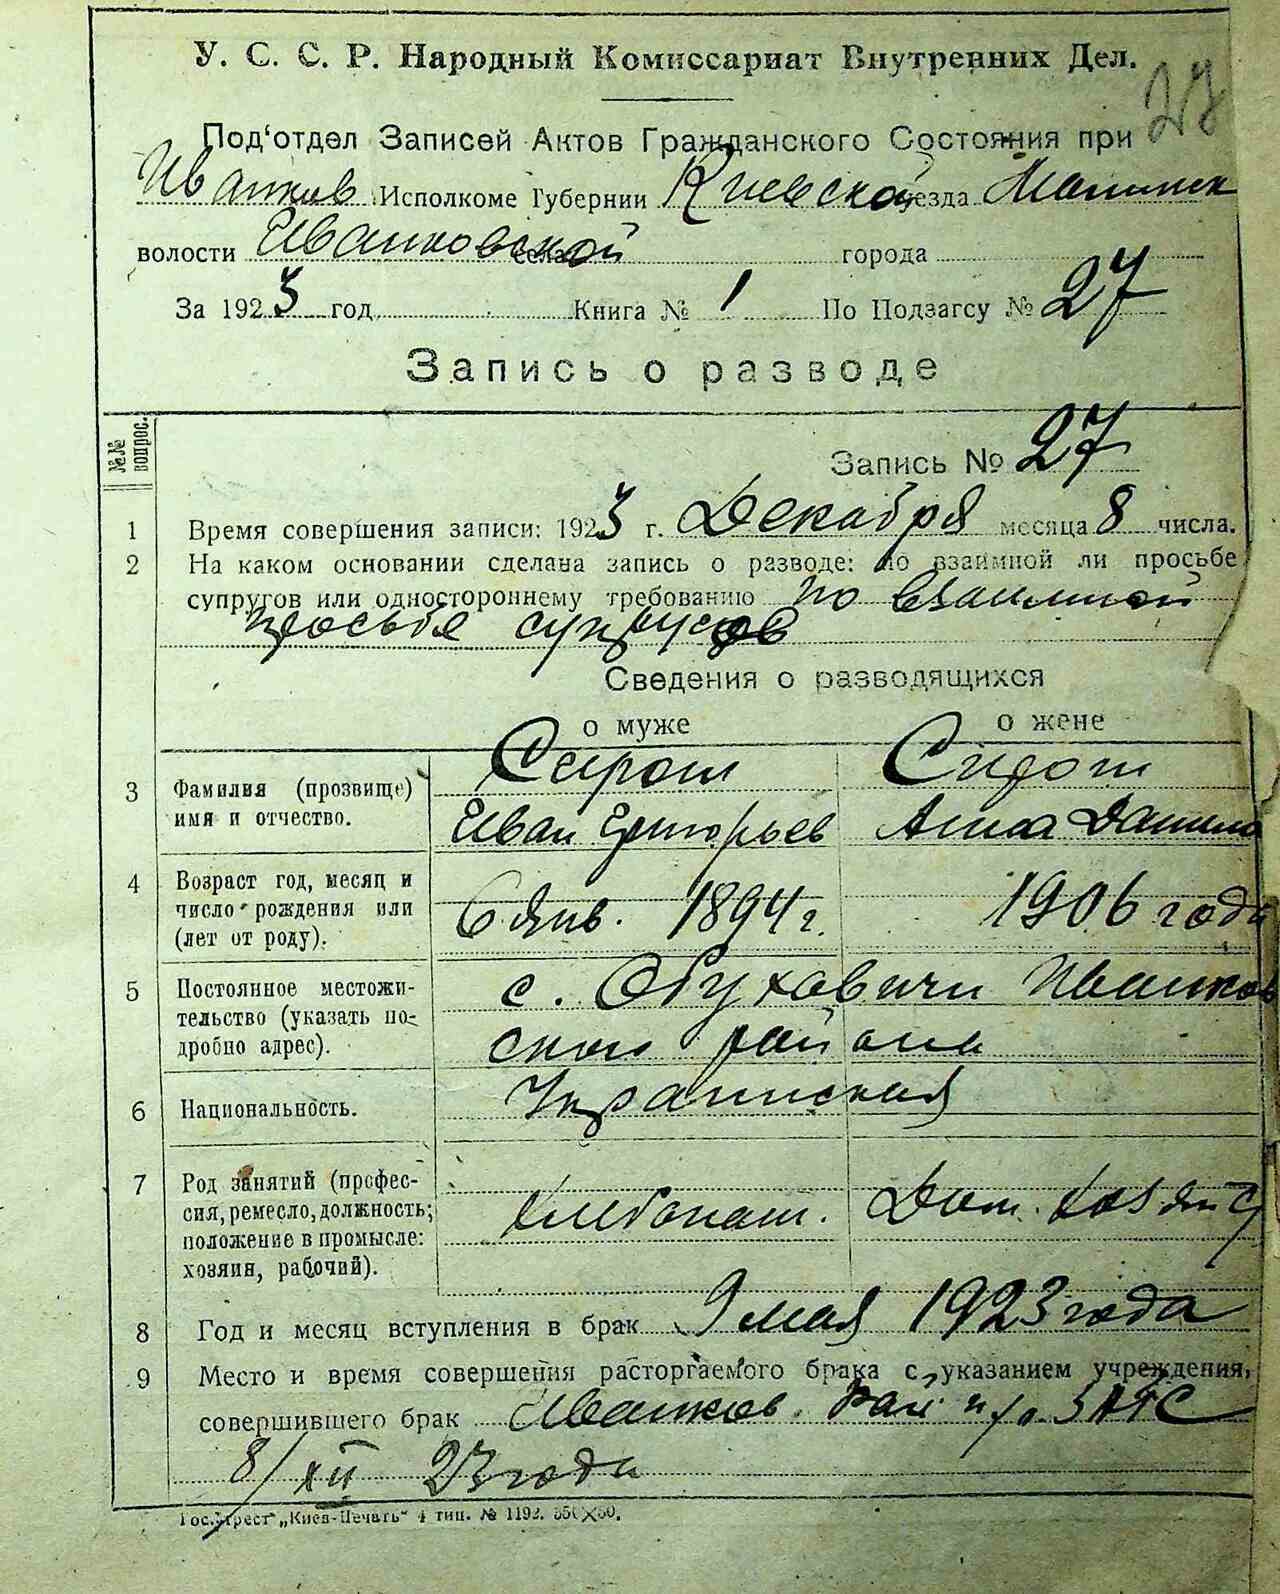 У. С. С. Р. Народный Комиссариат Внутренних Дел.
27
Под'отдел Записей Актов Гражданского Состояния при
Иванков Исполкоме Губернии Киевской уезда Малинск
волости Иванковской села города
За 1923 год Книга № 1 По Подзагсу № 27
Запись о разводе
№№ вопрос.
Запись № 27
1 Время совершения записи: 1923 г. Декабря месяца 8 числа.
2 На каком основании сделана запись о разводе: по взаимной ли просьбе
супругов или одностороннему требованию по взаимной
просьбе супругов
Сведения о разводящихся
о муже о жене
3 Фамилия (прозвище) имя и отчество.
Сирош Сирош
Иван Григорьев Анна Данило
4 Возраст год, месяц и число рождения или (лет от роду).
6 Янв. 1894 г. 1906 года
5 Постоянное местожи-
тельство (указать по-
дробно адрес).
с. Обуховичи Иванков
ского района
6 Национальность. Украинская
7 Род занятий (профес-
сия, ремесло, должность;
положение в промысле:
хозяин, рабочий).
Хлебопаш. Дом.
8 Год и месяц вступления в брак 9 мая 1923 года
9 Место и время совершения расторгаемого брака с указанием учреждения,
совершившего брак Иванков. Рай ЗАГС
8/XII 23 года
Гос.Трест „Киев-Печать“ 4 тип. № 1192. 350×50.